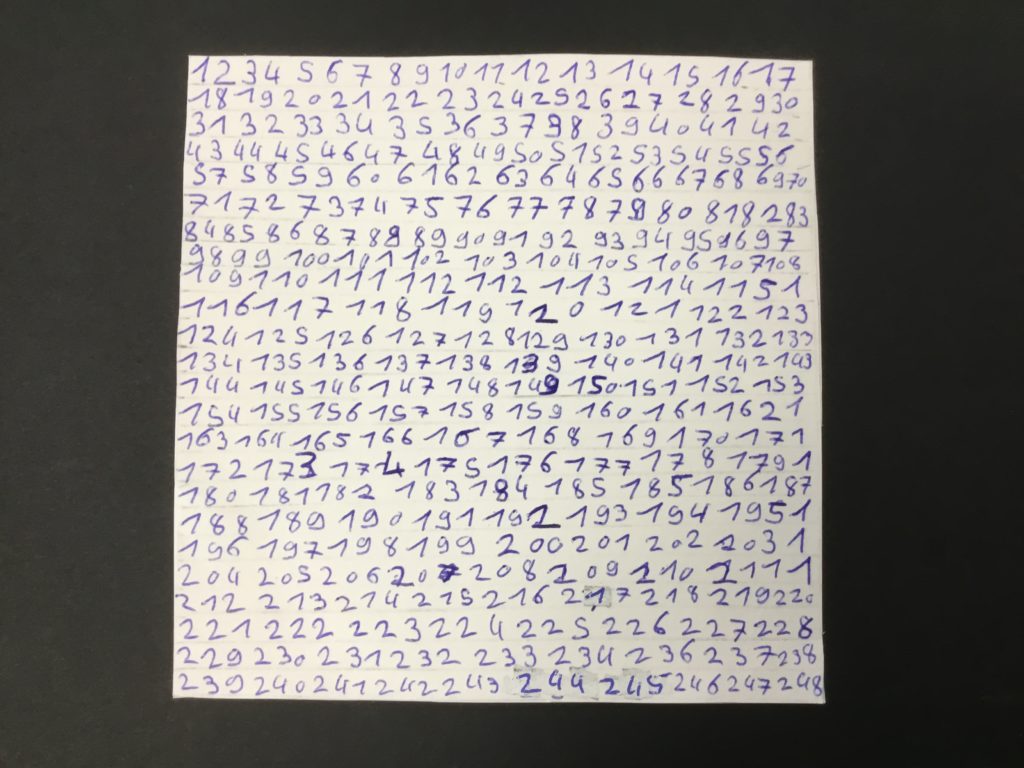 1 2 3 4 5 6 7 8 9 10 11 12 13 14 15 16 17
18 19 20 21 22 23 24 25 26 27 28 29 30
31 32 33 34 35 36 37 98 39 40 41 42
43 44 45 46 47 48 49 50 51 52 53 54 55 56
57 58 59 60 61 62 63 64 65 66 67 68 69 70
71 72 73 74 75 76 77 78 79 80 81 82 83
84 85 86 87 88 89 90 91 92 93 94 95 96 97
98 99 100 101 102 103 104 105 106 107 108
109 110 111 112 112 113 114 115 1
116 117 118 119 120 121 122 123
124 125 126 127 128 129 130 131 132 133
134 135 136 137 138 139 140 141 142 143
144 145 146 147 148 149 150 151 152 153
154 155 156 157 158 159 160 161 162 1
163 164 165 166 167 168 169 170 171
172 173 174 175 176 177 178 179 1
180 181 182 183 184 185 185 186 187
188 189 190 191 192 193 194 195 1
196 197 198 199 200 201 202 203 1
204 205 206 207 208 209 210 211 1
212 213 214 215 216 217 218 219 220
221 222 223 224 225 226 227 228
229 230 231 232 233 234 236 237 238
239 240 241 242 243 244 245 246 247 248